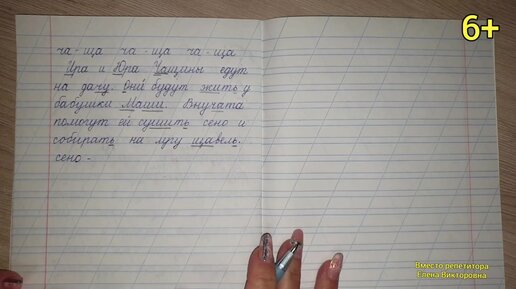 ча - ща ча - ща ча - ща
Ира и Юра Чащины едут
на дачу. Они будут жить у
бабушки Маши. Внучата
помогут ей сушить сено и
собирать на лугу щавель.
сено -
6+
Вместо репетитора
Елена Викторовна